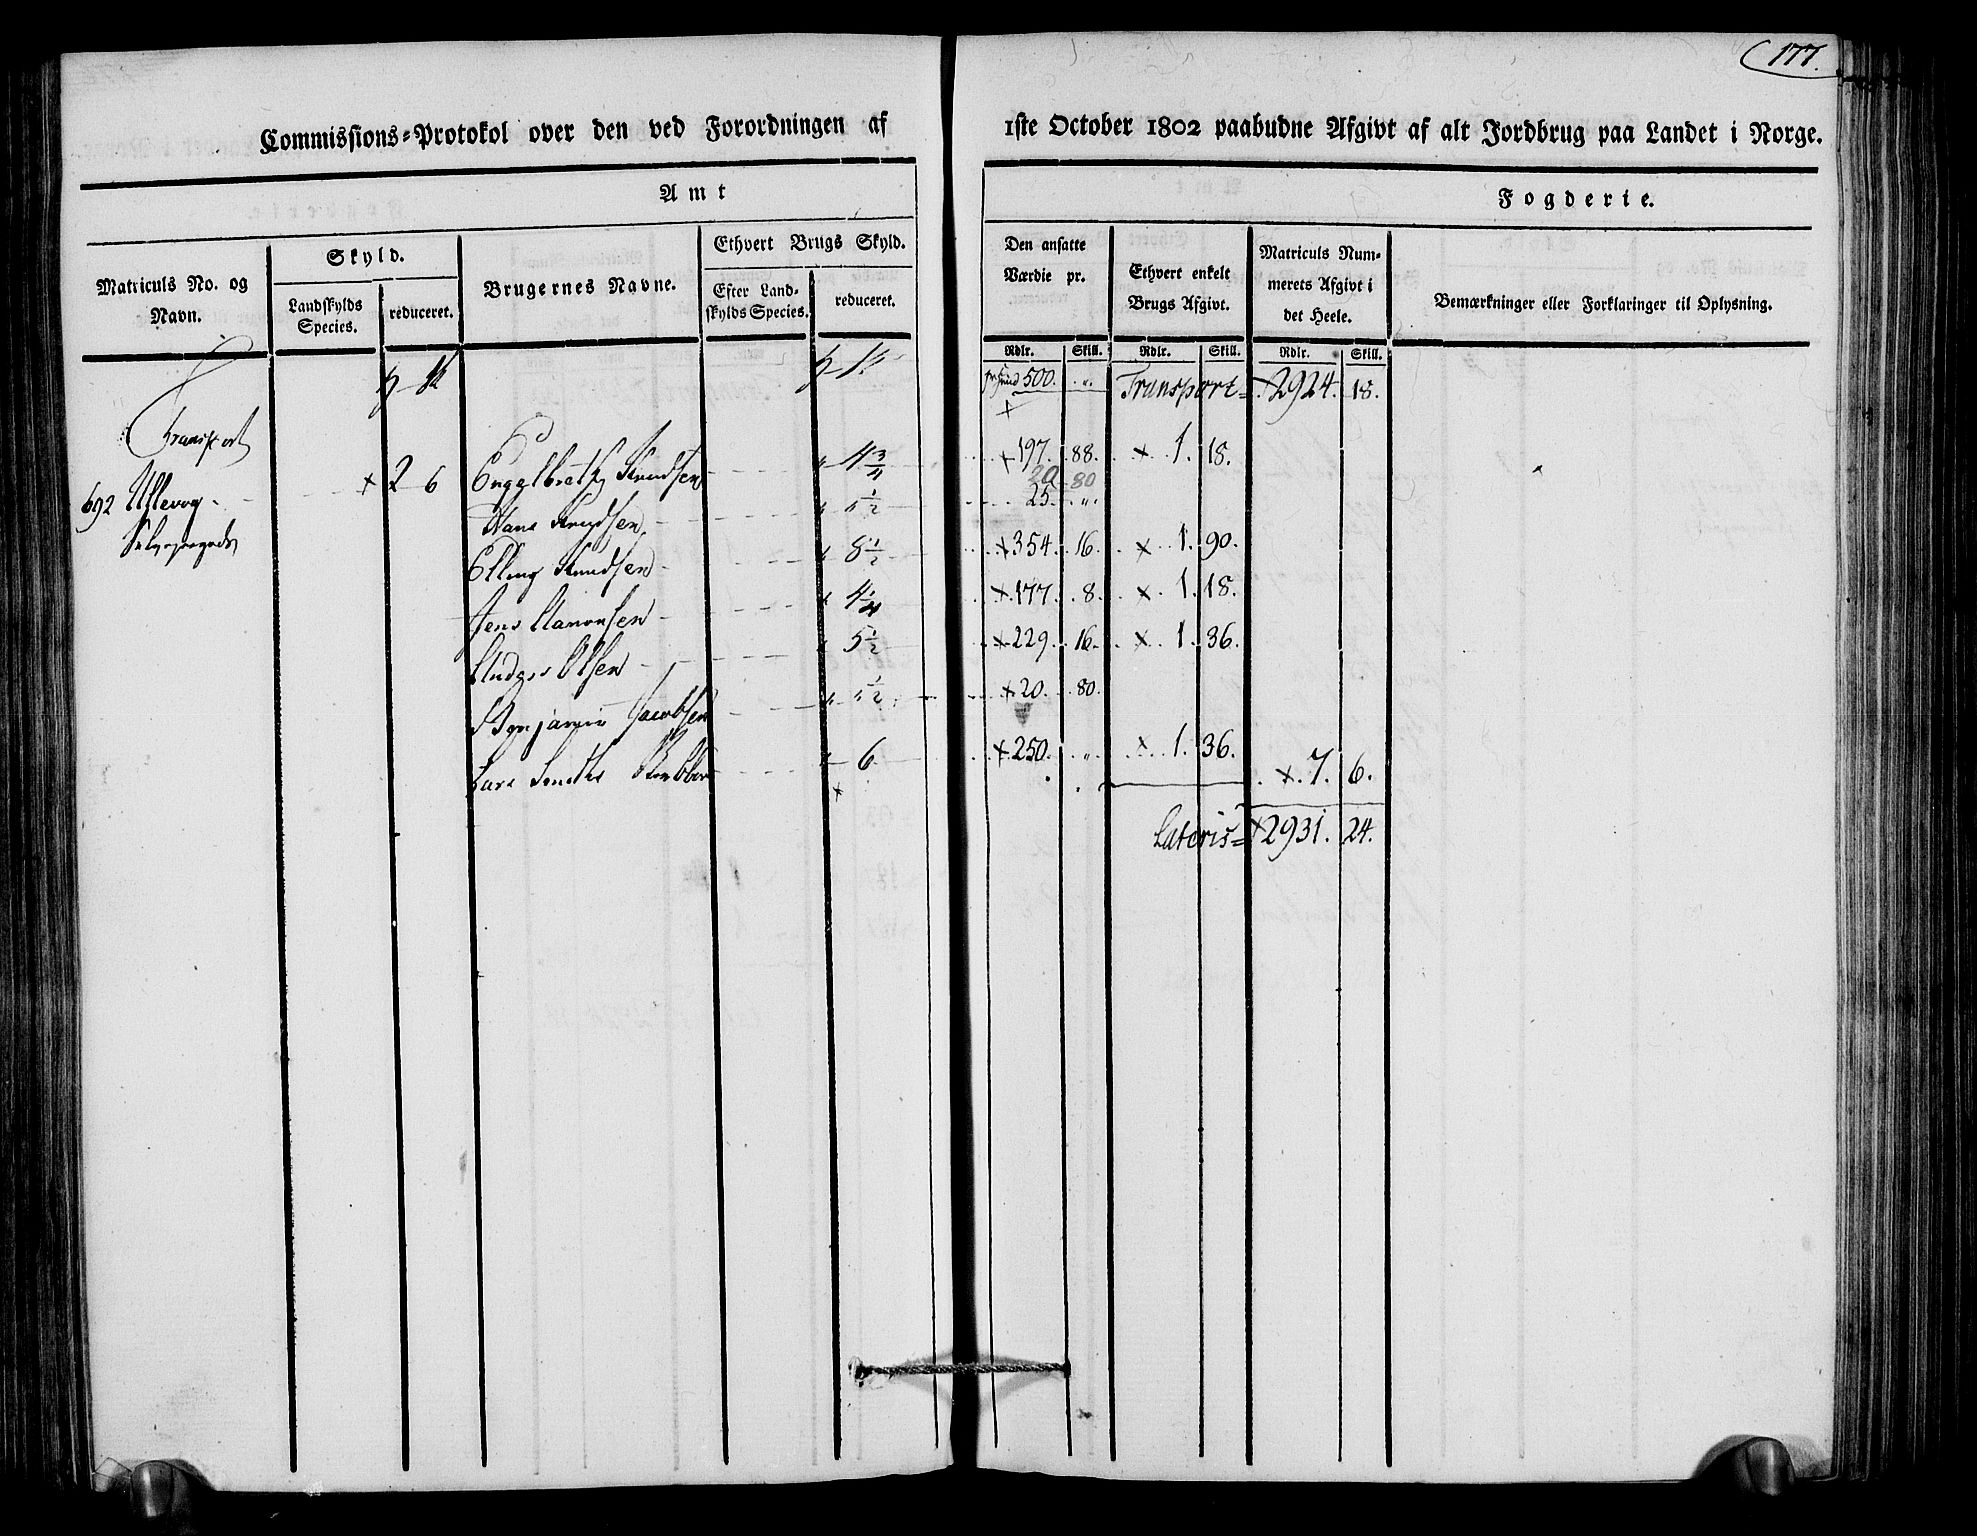 177.
Commissions-Protokol over den ved Forordningen af 1ste October 1802 paabudne Afgivt af alt Jordbrug paa Landet i Norge.
Amt Fogderie.
Matriculs No. og Navn.
Skyld.
Landskylds Species.
reduceret.
Brugernes Navne.
Ethvert Brugs Skyld.
Efter Landskylds Species.
reduceret.
Den ansatte Værdie pr.
Ethvert enkelt Brugs Afgivt.
Matriculs Nummerets Afgivt i det Heele.
Bemærkninger eller Forklaringer til Oplysning.
Rdlr. Skill. Rdlr. Skill. Rdlr. Skill.
500. „. Transport = 2924. 18.
Transport
692 Ullevog 2 6 Engelbreth Knudsen „ 4 3/4 197. 88. 1. 18.
20 80
Hans Knudsen „ 1/2 25 „
Elling Knudsen „ 8 1/2 354. 16. 1. 90.
Jens Aanonsen „ 4 1/4 177. 8. 1. 18.
Anders Olsen „ 5 1/2 229. 16. 1. 36.
Benjamin Jacobsen „ 1/2 20. 80.
Lars 6 250. „ 1. 36. 7. 6.
Lateris = 2931. 24.